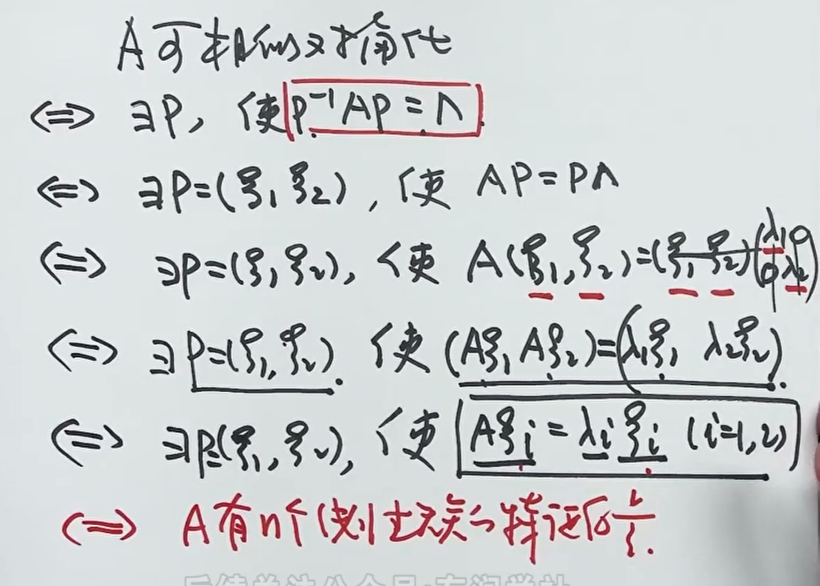 A可相似对角化
⇔ ∃P, 使 P⁻¹AP = Λ
⇔ ∃P=(ξ₁ ξ₂), 使 AP=PΛ
⇔ ∃P=(ξ₁, ξ₂), 使 A(ξ₁, ξ₂)=(ξ₁ ξ₂)(λ₁ 0 0 λ₂)
⇔ ∃P=(ξ₁, ξ₂). 使 (Aξ₁ Aξ₂)=(λ₁ξ₁ λ₂ξ₂).
⇔ ∃P=(ξ₁, ξ₂), 使 Aξᵢ = λᵢξᵢ (i=1,2)
⇔ A有n个线性无关的特征向量.